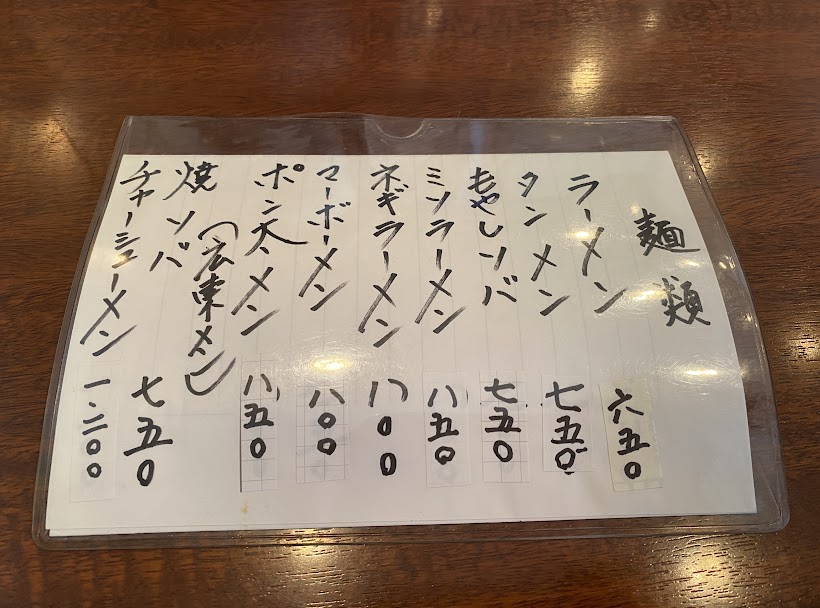 麺類
ラーメン 六五0
タンメン 七五0
もやしソバ 七五0
ミソラーメン 八五0
ネギラーメン 八00
マーボーメン 八00
ポン犬メン 八五0
(広東メン)
焼ソバ 七五0
チャーシューメン 一、二00